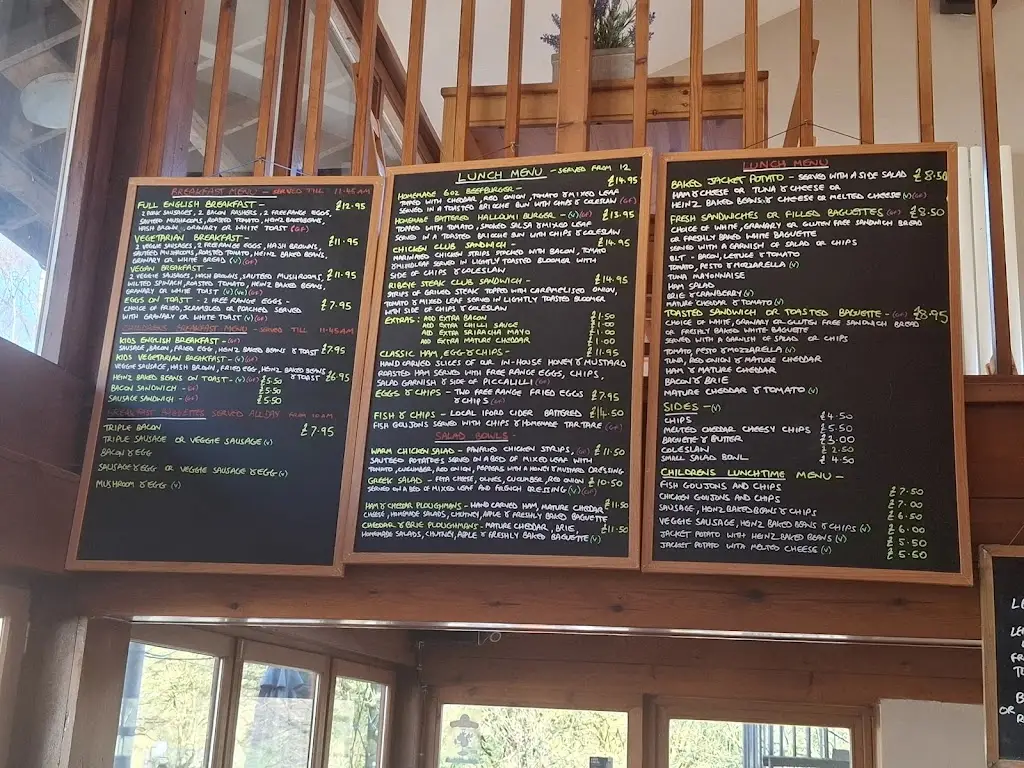 BREAKFAST MENU - SERVED TILL 11:45AM
FULL ENGLISH BREAKFAST - £12.95
2 PORK SAUSAGES, 2 BACON RASHERS, 2 FREE RANGE EGGS,
SAUTEED MUSHROOMS, ROASTED TOMATO, HEINZ BAKED BEANS,
HASH BROWN, GRANARY OR WHITE TOAST (GF)
VEGETARIAN BREAKFAST - £11.95
2 VEGGIE SAUSAGES, 2 FREE RANGE EGGS, HASH BROWNS,
SAUTEED MUSHROOMS, ROASTED TOMATO, HEINZ BEANS,
GRANARY OR WHITE BREAD (V) (GF)
VEGAN BREAKFAST - £11.95
2 VEGGIE SAUSAGES, HASH BROWNS, SAUTEED MUSHROOMS,
WILTED SPINACH, ROASTED TOMATO, HEINZ BEANS,
GRANARY OR WHITE TOAST (V) (VE) (GF)
EGGS ON TOAST - 2 FREE RANGE EGGS - £7.95
CHOICE OF FRIED, SCRAMBLED OR POACHED SERVED
WITH GRANARY OR WHITE TOAST (V) (GF)
CHILDRENS BREAKFAST MENU - SERVED TILL 11:45AM
KIDS ENGLISH BREAKFAST - (GF)
SAUSAGE, BACON, FRIED EGG, HEINZ BAKED BEANS & TOAST £7.95
KIDS VEGETARIAN BREAKFAST - (V) (GF)
VEGGIE SAUSAGE, HASH BROWN, FRIED EGG, HEINZ BAKED BEANS & TOAST £6.95
HEINZ BAKED BEANS ON TOAST - (V) (GF) £5.50
BACON SANDWICH - (GF) £5.50
SAUSAGE SANDWICH - (GF) £5.50
BREAKFAST BAGUETTES SERVED ALL DAY FROM 10AM
TRIPLE BACON £7.95
TRIPLE SAUSAGE OR VEGGIE SAUSAGE (V)
BACON & EGG
SAUSAGE & EGG OR VEGGIE SAUSAGE & EGG (V)
MUSHROOM & EGG (V)
LUNCH MENU - SERVED FROM 12
HOMEMADE 6OZ BEEFBURGER - £14.95
TOPPED WITH CHEDDAR, RED ONION, TOMATO & MIXED LEAF
SERVED IN A TOASTED BRIOCHE BUN WITH CHIPS & COLESLAW (GF)
HOMEMADE BATTERED HALLOUMI BURGER - (V) (GF) £13.95
TOPPED WITH TOMATO, SMOKED SALSA & MIXED LEAF
SERVED IN A TOASTED BRIOCHE BUN WITH CHIPS & COLESLAW
CHICKEN CLUB SANDWICH - £14.95
MARINADED CHICKEN STRIPS STACKED WITH BACON, TOMATO
& MIXED LEAF SERVED IN LIGHTLY TOASTED BLOOMER WITH
SIDE OF CHIPS & COLESLAW
RIBEYE STEAK CLUB SANDWICH - £14.95
STRIPS OF GRILLED STEAK TOPPED WITH CARAMELISED ONION,
TOMATO & MIXED LEAF SERVED IN LIGHTLY TOASTED BLOOMER
WITH SIDE OF CHIPS & COLESLAW
EXTRAS: ADD EXTRA BACON £1.50
ADD EXTRA CHILLI SAUCE £1.00
ADD EXTRA SRIRACHA MAYO £1.00
ADD EXTRA MATURE CHEDDAR £1.00
CLASSIC HAM, EGG & CHIPS - £11.95
HAND CARVED SLICES OF OUR IN-HOUSE HONEY & MUSTARD
ROASTED HAM SERVED WITH FREE RANGE EGGS, CHIPS,
SALAD GARNISH & SIDE OF PICCALILLI (GF)
EGGS & CHIPS - TWO FREE RANGE FRIED EGGS £7.95
& CHIPS (GF)
FISH & CHIPS - LOCAL IFORD CIDER BATTERED £14.50
FISH GOUJONS SERVED WITH CHIPS & HOMEMADE TARTARE (GF)
SALAD BOWLS -
WARM CHICKEN SALAD - PANFRIED CHICKEN STRIPS, (GF) £11.50
SAUTEED POTATOES SERVED ON A BED OF MIXED LEAF WITH
TOMATO, CUCUMBER, RED ONION, PEPPERS WITH A HONEY & MUSTARD DRESSING
GREEK SALAD - FETA CHEESE, OLIVES, CUCUMBER, RED ONION £10.50
SERVED ON A BED OF MIXED LEAF AND FRENCH DRESSING (V) (GF)
HAM & CHEDDAR PLOUGHMANS - HAND CARVED HAM, MATURE CHEDDAR £11.50
CHEESE, HOMEMADE SALADS, CHUTNEY, APPLE & FRESHLY BAKED BAGUETTE
CHEDDAR & BRIE PLOUGHMANS - MATURE CHEDDAR, BRIE, £11.50
HOMEMADE SALADS, CHUTNEY, APPLE & FRESHLY BAKED BAGUETTE (V)
LUNCH MENU
BAKED JACKET POTATO - SERVED WITH A SIDE SALAD £8.50
HAM & CHEESE OR TUNA & CHEESE OR
HEINZ BAKED BEANS & CHEESE OR MELTED CHEESE (V) (GF)
FRESH SANDWICHES OR FILLED BAGUETTES (GF) £8.50
CHOICE OF WHITE, GRANARY OR GLUTEN FREE SANDWICH BREAD
OR FRESHLY BAKED WHITE BAGUETTE
SERVED WITH A GARNISH OF SALAD OR CHIPS
BLT - BACON, LETTUCE & TOMATO
TOMATO, PESTO & MOZZARELLA (V)
TUNA MAYONNAISE
HAM SALAD
BRIE & CRANBERRY (V)
MATURE CHEDDAR & TOMATO (V)
TOASTED SANDWICH OR TOASTED BAGUETTE - (GF) £8.95
CHOICE OF WHITE, GRANARY OR GLUTEN FREE SANDWICH BREAD
OR FRESHLY BAKED WHITE BAGUETTE
SERVED WITH A GARNISH OF SALAD OR CHIPS
TOMATO, PESTO & MOZZARELLA (V)
TUNA, RED ONION & MATURE CHEDDAR
HAM & MATURE CHEDDAR
BACON & BRIE
MATURE CHEDDAR & TOMATO (V)
SIDES - (V)
CHIPS £4.50
MELTED CHEDDAR CHEESY CHIPS £5.50
BAGUETTE & BUTTER £3.00
COLESLAW £2.50
SMALL SALAD BOWL £4.50
CHILDRENS LUNCHTIME MENU -
FISH GOUJONS AND CHIPS £7.50
CHICKEN GOUJONS AND CHIPS £7.00
SAUSAGE, HEINZ BAKED BEANS & CHIPS £6.50
VEGGIE SAUSAGE, HEINZ BAKED BEANS & CHIPS (V) £6.00
JACKET POTATO WITH HEINZ BAKED BEANS (V) £5.50
JACKET POTATO WITH MELTED CHEESE (V) £5.50